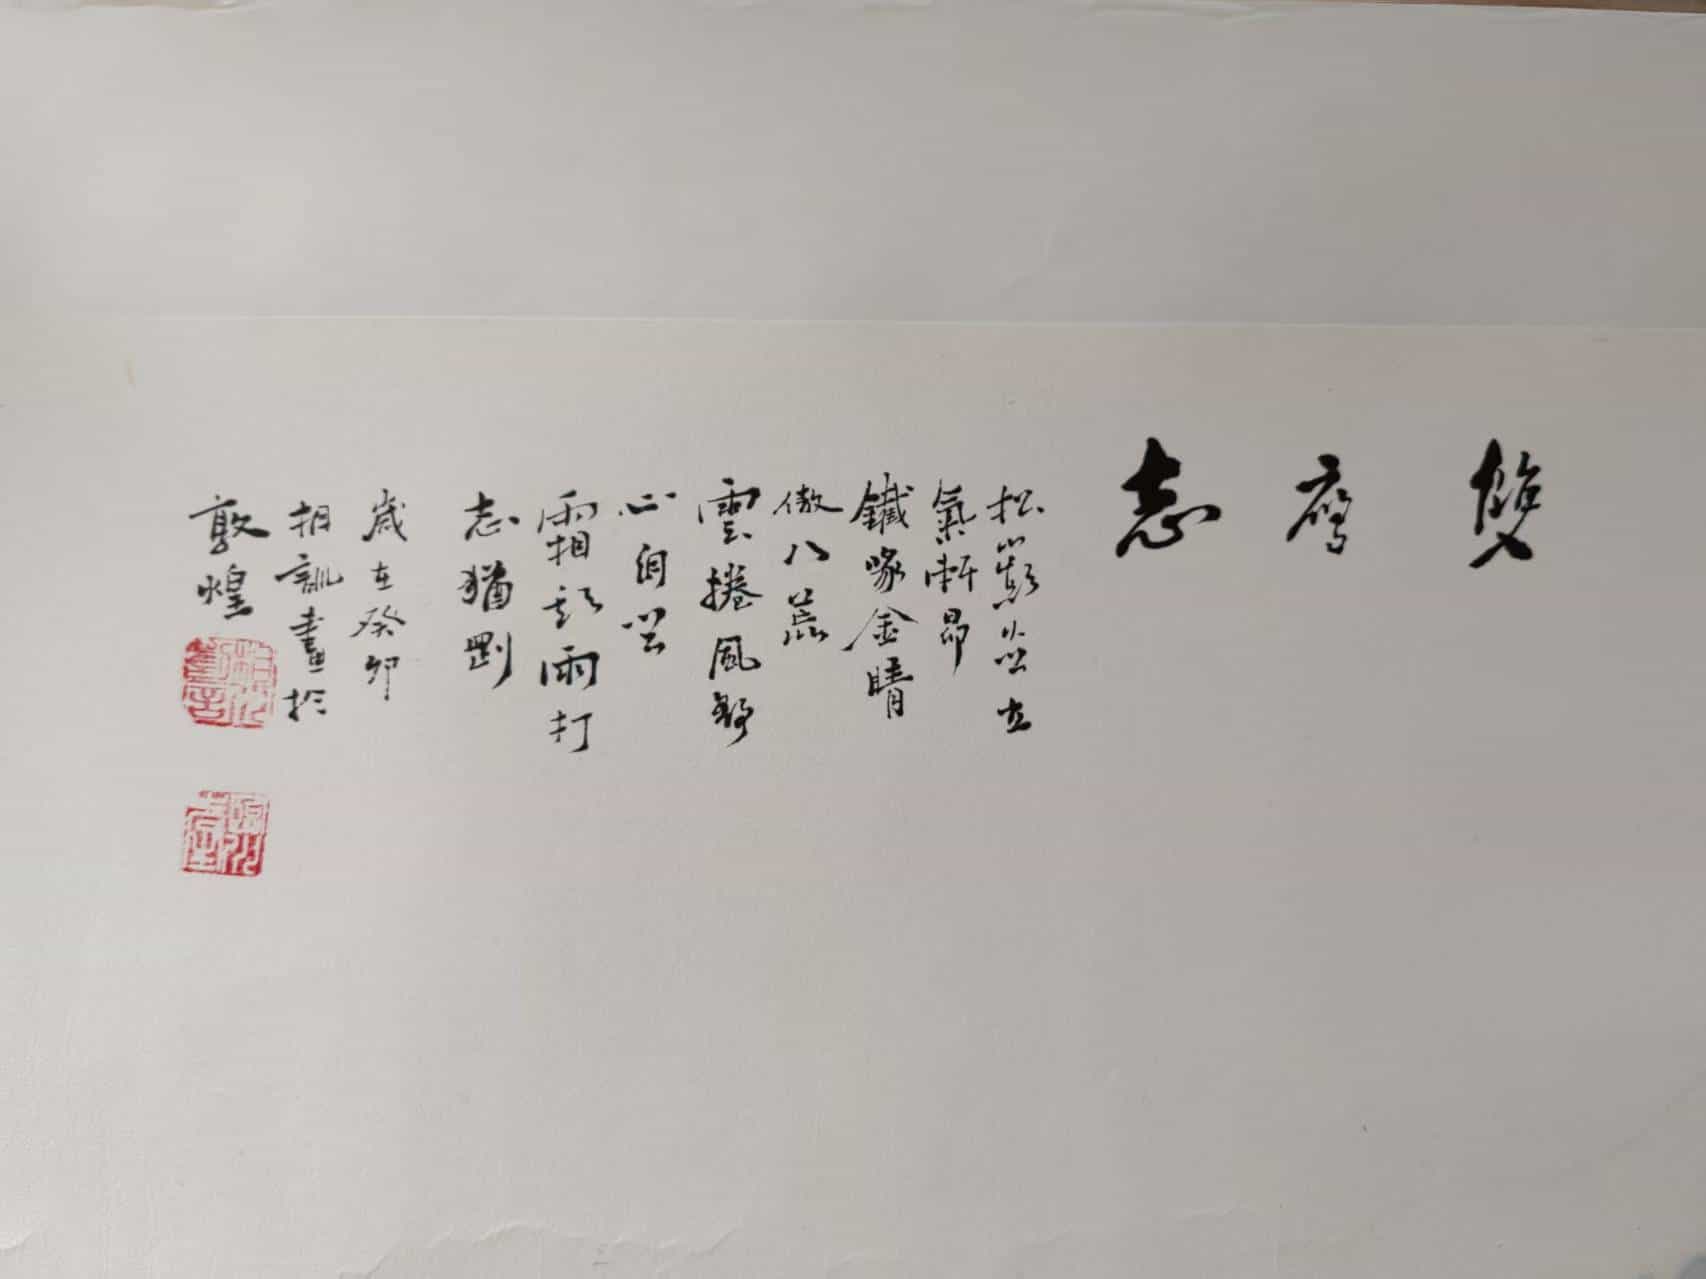 雙鷹志
松巔並立
氣軒昂
鐵喙金睛
傲八荒
雲捲風舒
心自
霜欺雨打
志猶剛
歲在癸卯
訓畫於
敦煌